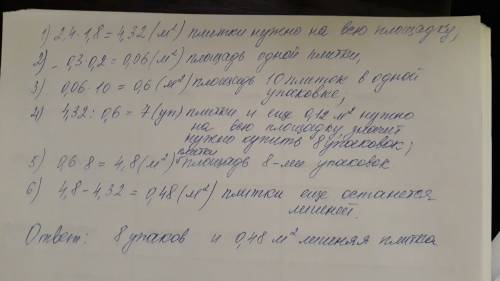 1) 2,4 · 1,8 = 4,32 (м²) плитки нужно на всю площадку,
2) - 0,3·0,2 = 0,06 (м²) площадь одной плитки,
3) 0,06 · 10 = 0,6 (м²) площадь 10 плиток в одной
упаковке,
4) 4,32 : 0,6 = 7 (уп) плитки и еще 0,12 м² нужно
на всю площадку, значит
нужно купить 8 упаковок;
плитки
5) 0,6 · 8 = 4,8 (м²) площадь 8-ми упаковок
6) 4,8 - 4,32 = 0,48 (м²) плитки еще останется
лишней.
Ответ: 8 упаков и 0,48 м² лишняя плитка